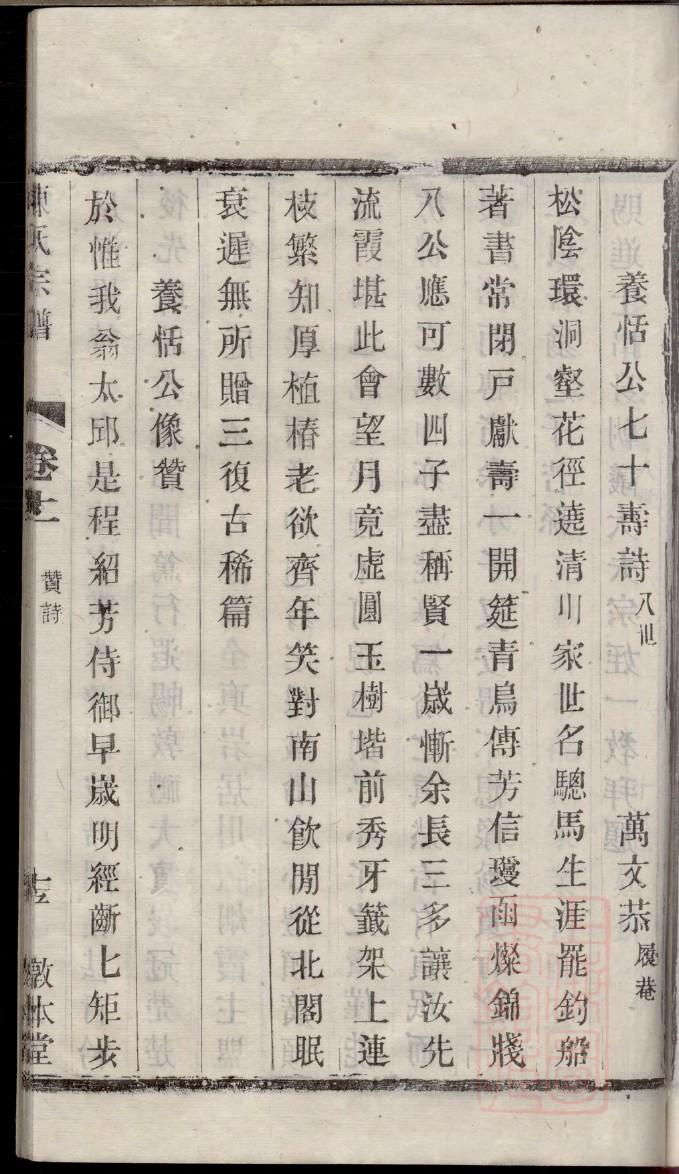 養恬公七十壽詩 八世 萬文恭 履菴
松陰環洞壑花徑遶清川家世名驄馬生涯罷釣船
著書常閉戸獻壽一開筵青鳥傳芳信瓊函燦錦牋
八公應可數四子盡稱賢一歲慚余長三多讓汝先
流霞堪此會望月竟虛圓玉樹堦前秀牙籖架上連
枝繁知厚植椿老欲齊年笑對南山飲閒從北閣眠
衰遲無所贈三復古稀篇
養恬公像贊
於惟我翁太邱是程紹芳侍御早歲明經斷匕矩步
陳氏宗譜 卷十一 贊詩 敦本堂